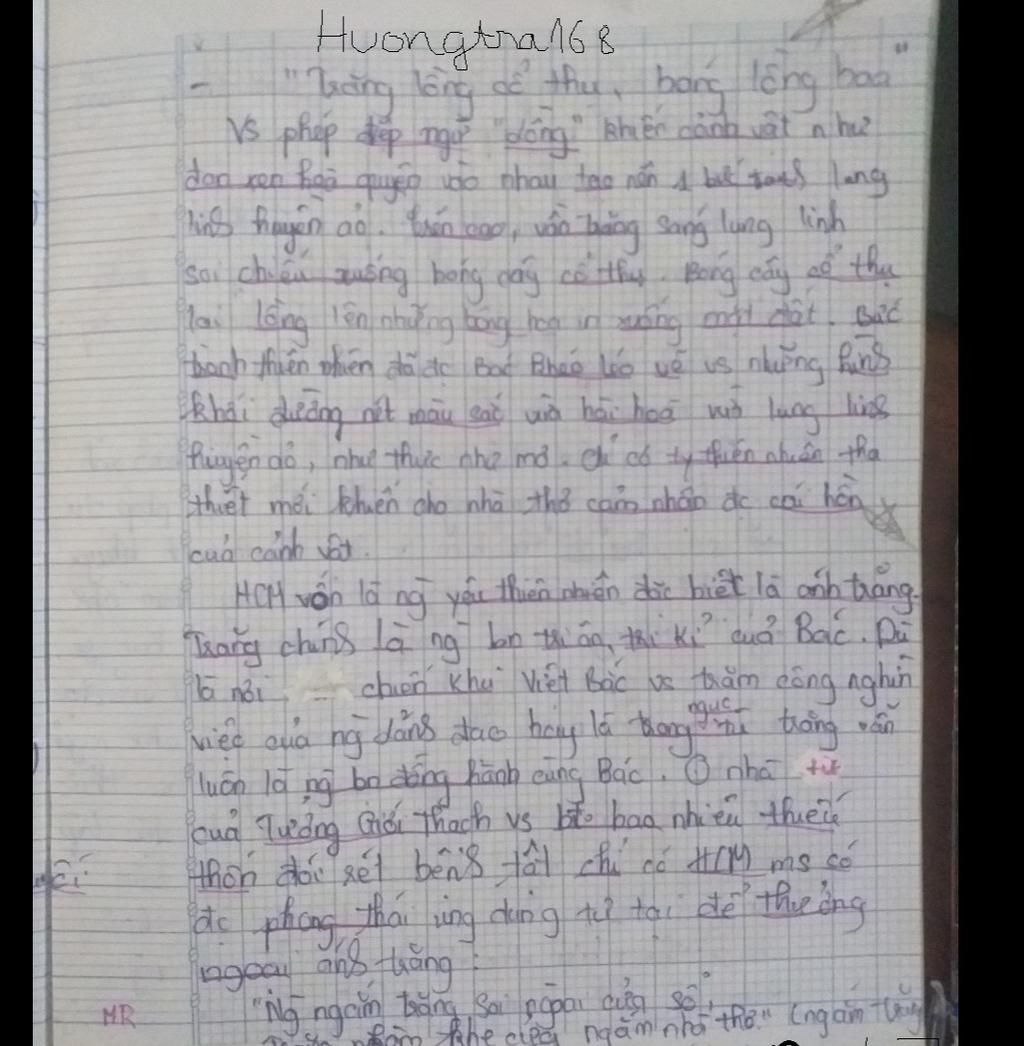 Huongtra168
- "Trăng lồng cổ thụ, bóng lồng hoa"
Vs phép điệp ngữ "lồng" khiến cảnh vật như
đan xen hoà quyện vào nhau tạo nên 1 bức tranh lung
linh huyền ảo. trên cao, vầng trăng sáng lung linh
soi chiếu xuống bóng cây cổ thụ. Bóng cây cổ thụ
lại lồng lên những bông hoa in xuống mặt đất. Bức
tranh thiên nhiên đã đc Bác khéo léo vẽ vs những hình
khối đường nét màu sắc vừa hài hoà vừa lung linh
huyền ảo, như thực như mơ. Chỉ có ty thiên nhiên tha
thiết mới khiến cho nhà thơ cảm nhận đc cái hồn
của cảnh vật.
HCM vốn là ng yêu thiên nhiên đặc biệt là ánh trăng.
Trăng chính là ng bn tri ân, tri kỉ của Bác. Dù
là nơi chiến khu Việt Bắc vs trăm công nghìn
việc của ng lãnh đạo hay là trong ngục tù trăng vẫn
luôn là ng bn đồng hành cùng Bác. Ở nhà tù
của Tưởng Giới Thạch vs bao nhiêu thiếu
thốn đói rét bệnh tật chỉ có HCM ms có
đc phong thái ung dung tự tại để thưởng
ngoại ánh trăng:
MR "Ng ngắm trăng soi ngoài cửa sổ,
khe cửa ngắm nhà thơ" (ngắm trăng